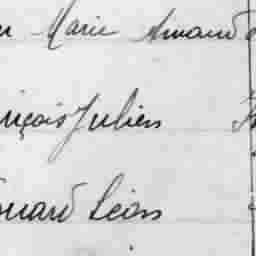 Marie Amand
nçois Julien
ouard Léon